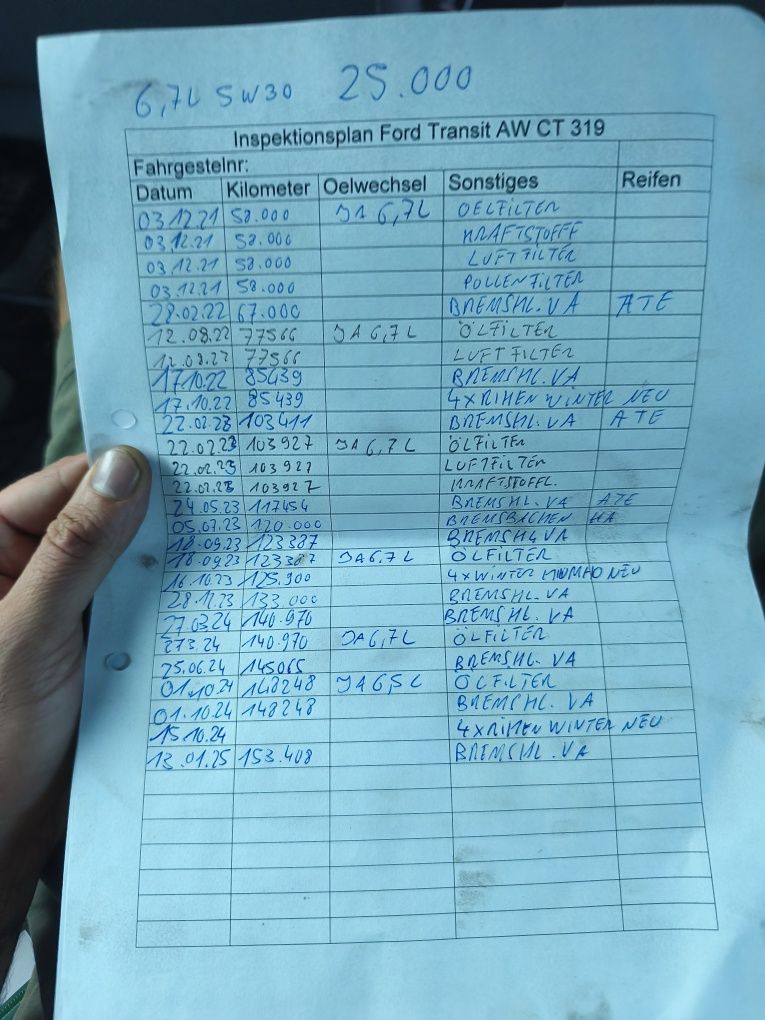 6,7L 5W30 25.000
Inspektionsplan Ford Transit AW CT 319
Fahrgestelnr:
Datum Kilometer Oelwechsel Sonstiges Reifen
03.12.21 58.000 JA 6,7L OELFILTER
03.12.21 58.000 KRAFTSTOFFF
03.12.21 58.000 LUFTFILTER
03.12.21 58.000 POLLENFILTER
28.02.22 67.000 BREMSHL.VA ATE
12.08.22 77566 JA 6,7L ÖLFILTER
12.08.22 77566 LUFTFILTER
17.10.22 85439 BREMSHL.VA
17.10.22 85439 4xRIHEN WINTER NEU
22.02.23 103411 BREMSHL.VA ATE
22.02.23 103927 JA 6,7L ÖLFILTER
22.02.23 103927 LUFTFILTER
22.02.23 103927 KRAFTSTOFFL.
24.05.23 117454 BREMSHL.VA ATE
05.07.23 120.000 BREMSBACHEN HA
18.09.23 123387 BREMSHL VA
18.09.23 123387 JA6,7L ÖLFILTER
16.10.23 125.900 4xWINTER NEU
28.11.23 133.000 BREMSHL.VA
27.03.24 140.970 BREMSHL.VA
273.24 140.970 JA6,7L ÖLFILTER
25.06.24 145065 BREMSHL. VA
01.10.24 148248 JA 6,5L ÖLFILTER
01.10.24 148248 BREMSHL. VA
15.10.24 4xRIHEN WINTER NEU
13.01.25 153.408 BREMSHL.VA